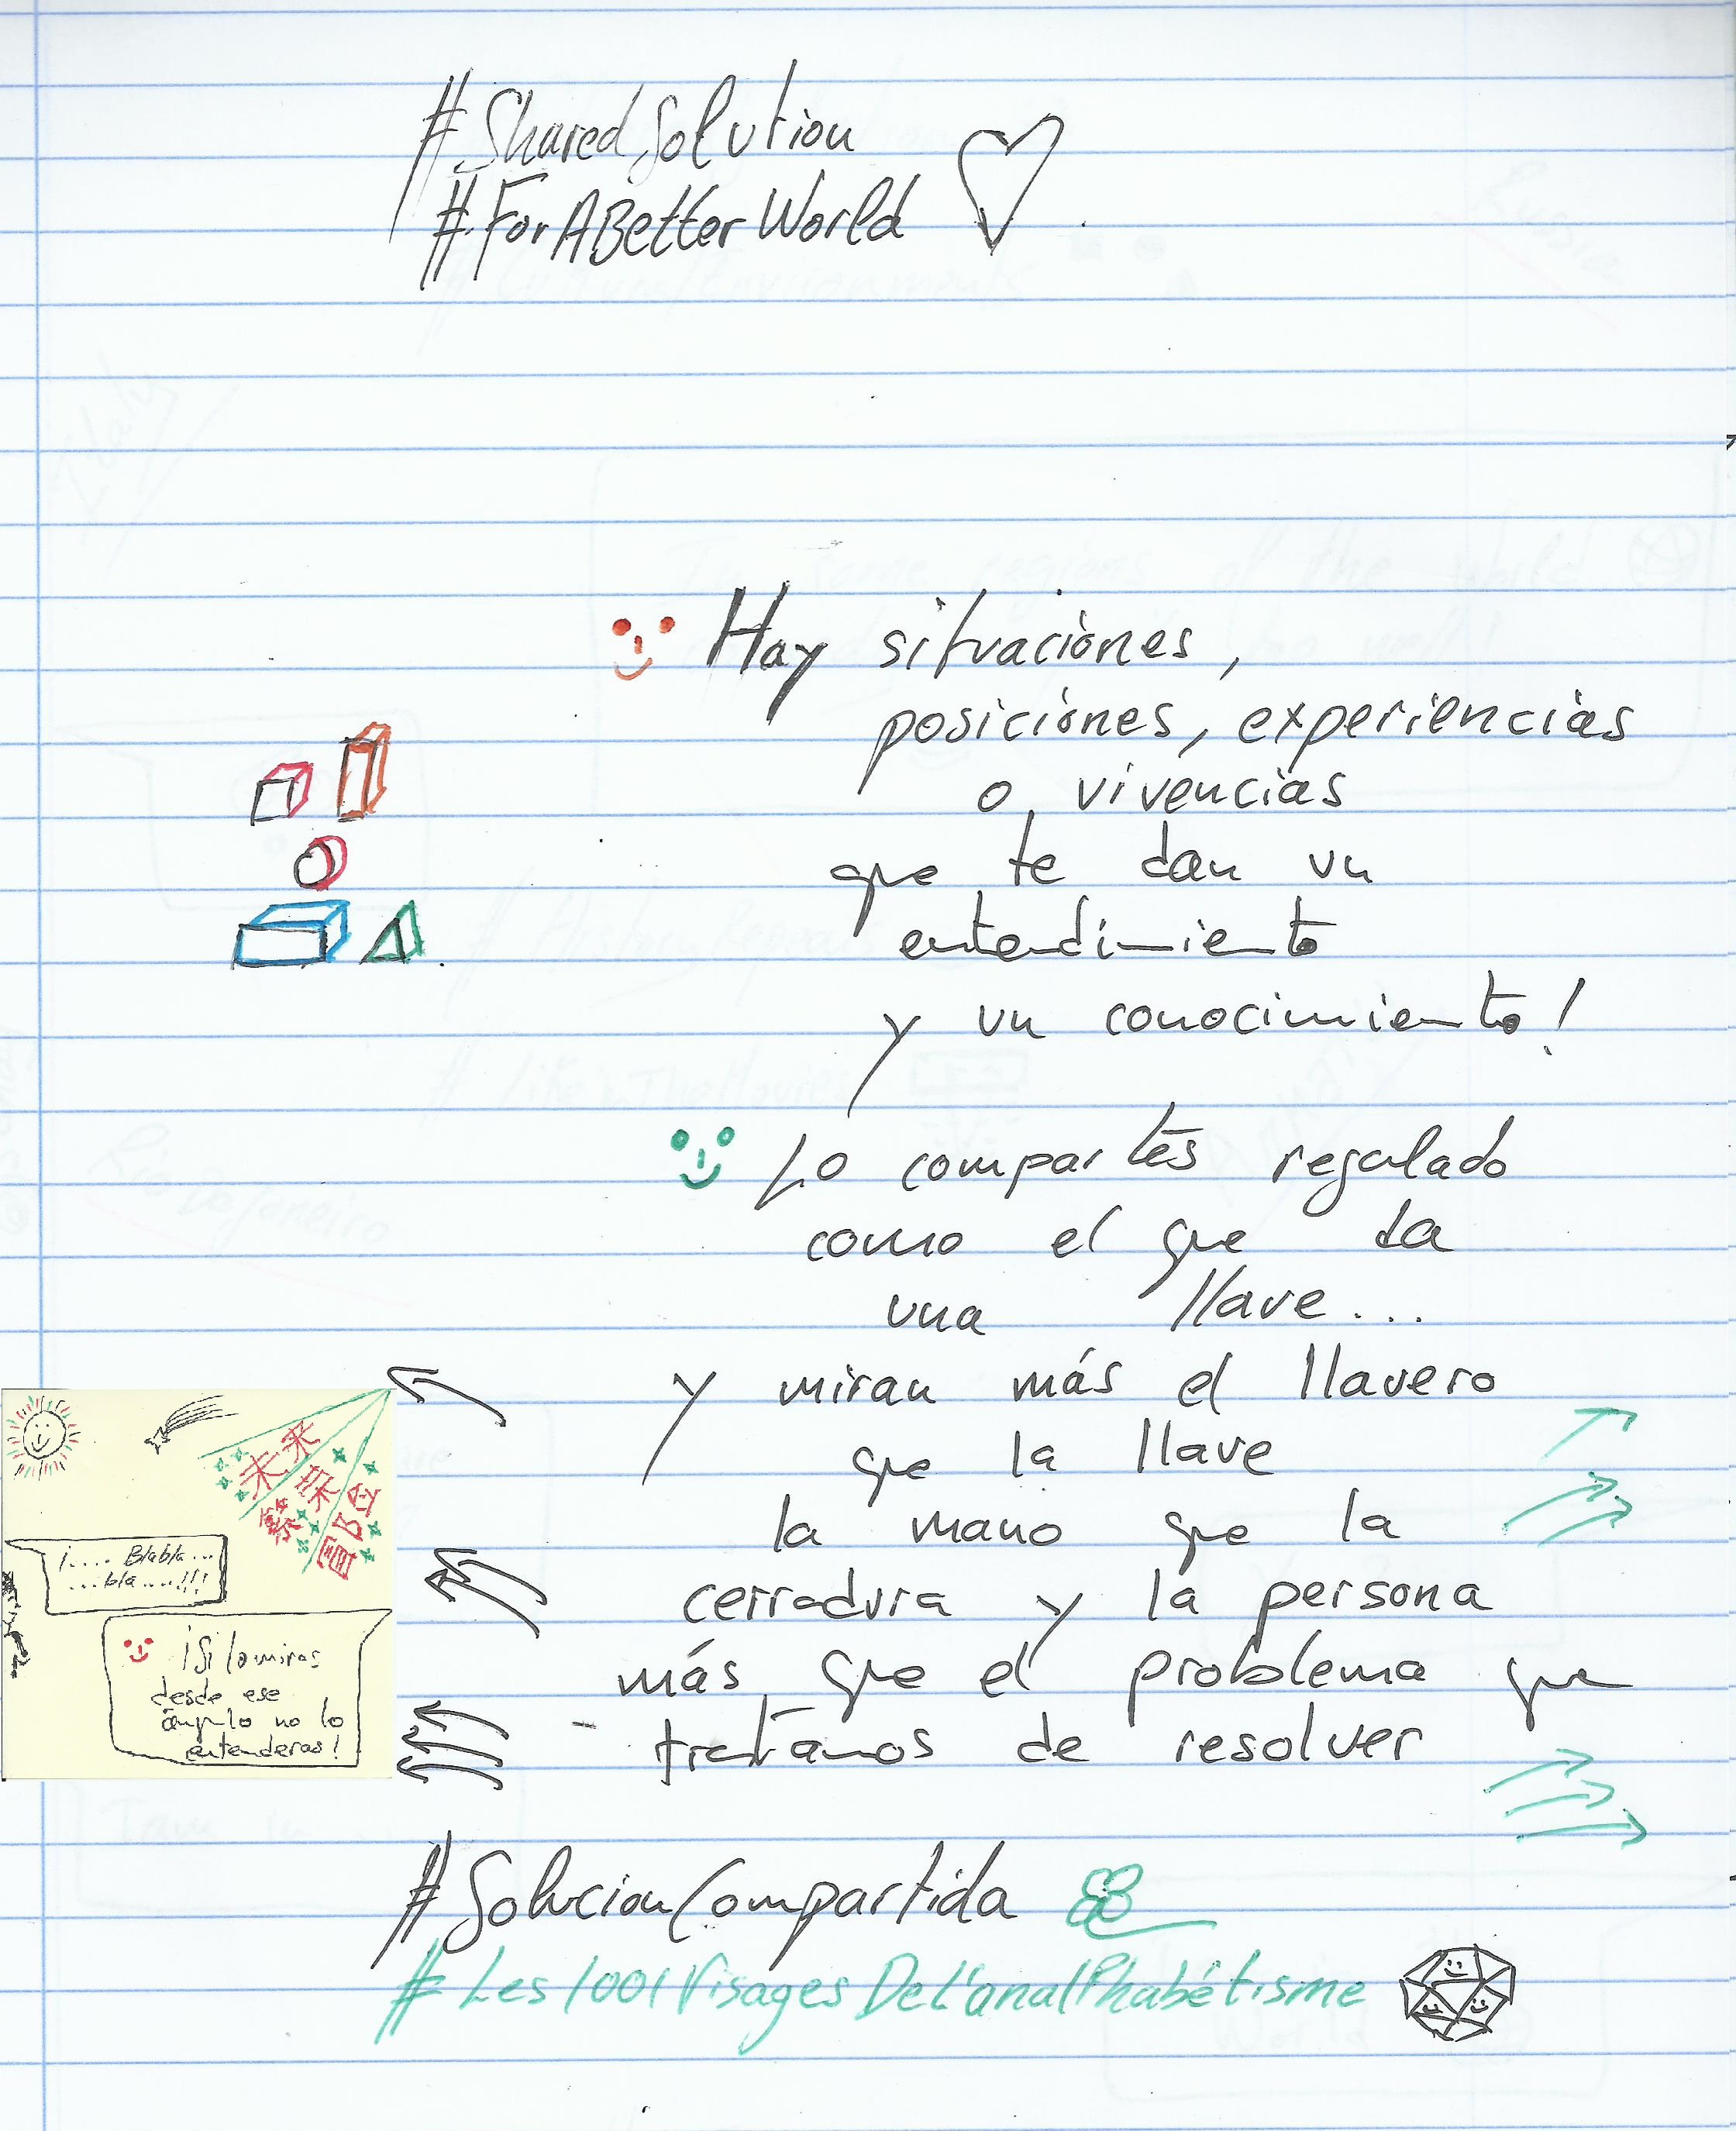 #SharedSolution
#ForABetterWorld
Hay situaciones,
posiciones, experiencias
o vivencias
que te dan un
entendimiento
y un conocimiento!
Lo compartes regalado
como el que da
una llave...
y miran más el llavero
que la llave
la mano que la
cerradura y la persona
más que el problema que
tratamos de resolver
未来
繁荣
冒险
¡.... Blabla...
...bla....!!!
¡Si lo miras
desde ese
ángulo no lo
entenderas!
#SolucionCompartida
#Les1001VisagesDeL'analPhabétisme